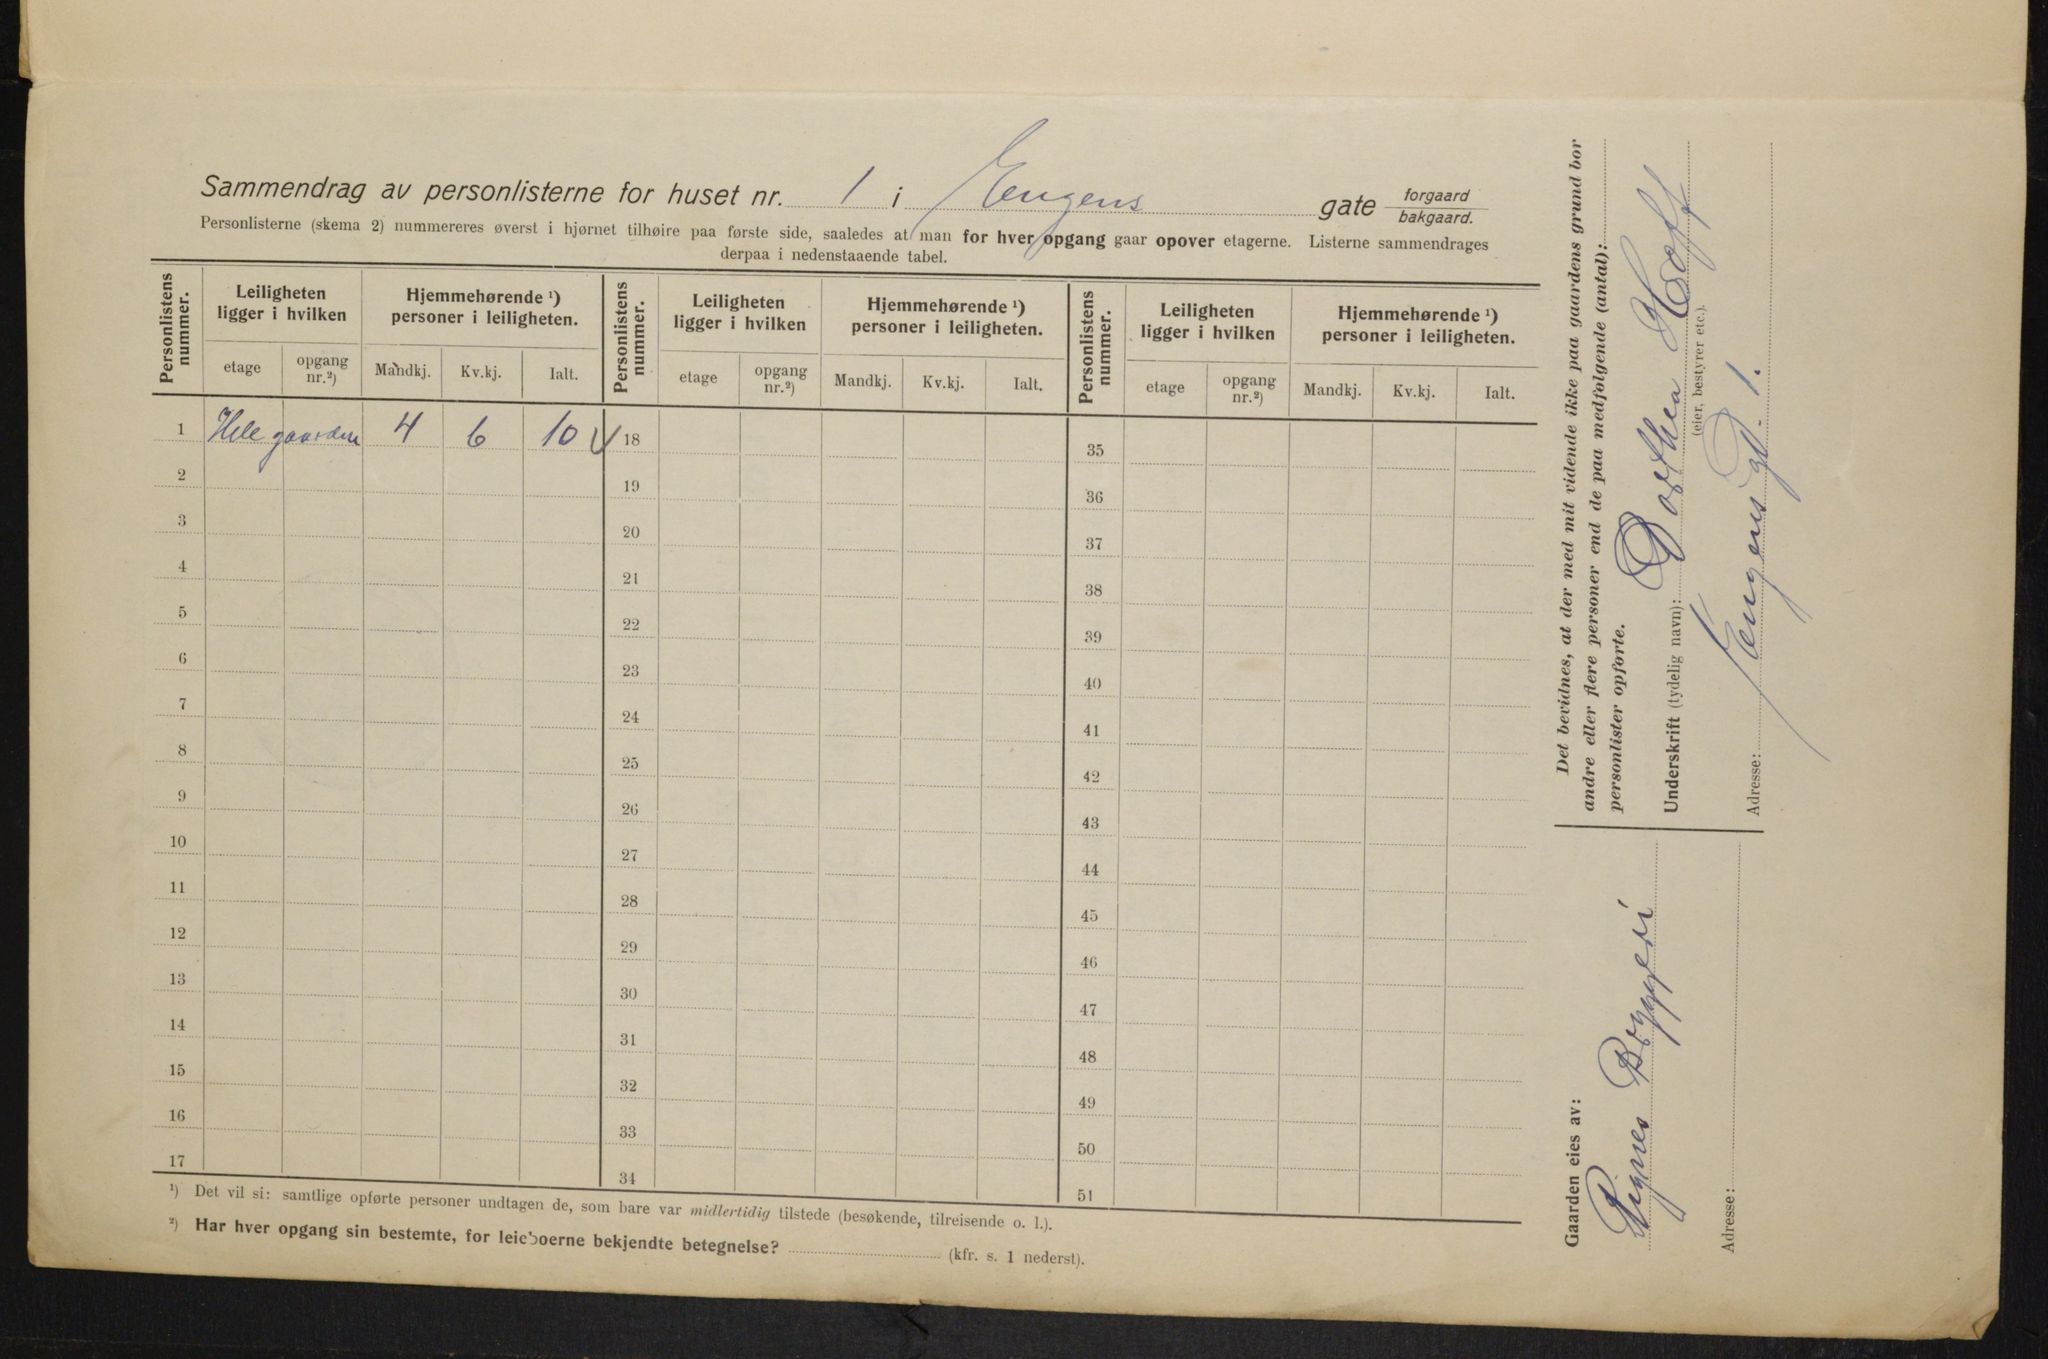 Sammendrag av personlisterne for huset nr. 1 i Eugens gate forgaard
bakgaard.
Personlisterne (skema 2) nummereres øverst i hjørnet tilhøire paa første side, saaledes at man for hver opgang gaar opover etagerne. Listerne sammendrages
derpaa i nedenstaaende tabel.
Personlistens nummer. Leiligheten ligger i hvilken Hjemmehørende ¹) personer i leiligheten. Personlistens nummer. Leiligheten ligger i hvilken Hjemmehørende ¹) personer i leiligheten. Personlistens nummer. Leiligheten ligger i hvilken Hjemmehørende ¹) personer i leiligheten.
etage opgang nr.²) Mandkj. Kv.kj. Ialt. etage opgang nr.²) Mandkj. Kv.kj. Ialt. etage opgang nr.²) Mandkj. Kv.kj. Ialt.
1 Hele gaarden 4 6 10 18 35
2 19 36
3 20 37
4 21 38
5 22 39
6 23 40
7 24 41
8 25 42
9 26 43
10 27 44
11 28 45
12 29 46
13 30 47
14 31 48
15 32 49
16 33 50
17 34 51
¹) Det vil si: samtlige opførte personer undtagen de, som bare var midlertidig tilstede (besøkende, tilreisende o. l.).
²) Har hver opgang sin bestemte, for leieboerne bekjendte betegnelse? (kfr. s. 1 nederst).
Det bevidnes, at der med mit vidende ikke paa gaardens grund bor
andre eller flere personer end de paa medfølgende (antal):
personlister opførte.
Underskrift (tydelig navn): Dorthea Hoff
(eier, bestyrer etc.).
Adresse: Eugensgt. 1.
Gaarden eies av:
Ringnes Bryggeri
Adresse: